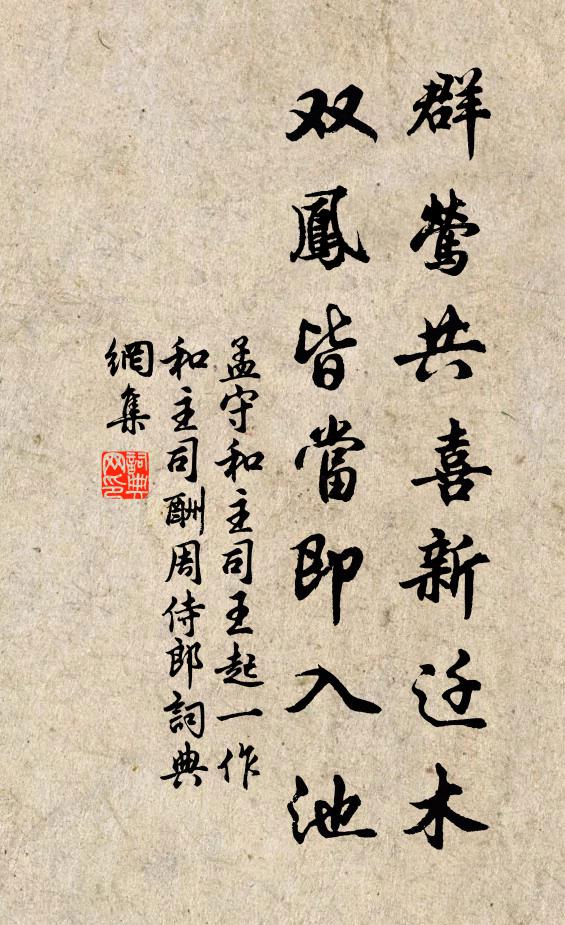 群鶯共喜新迁木
双鳳皆當即入池
孟守和主司王起一作
和主司酬周侍郎詞典
網集
詞典
网印